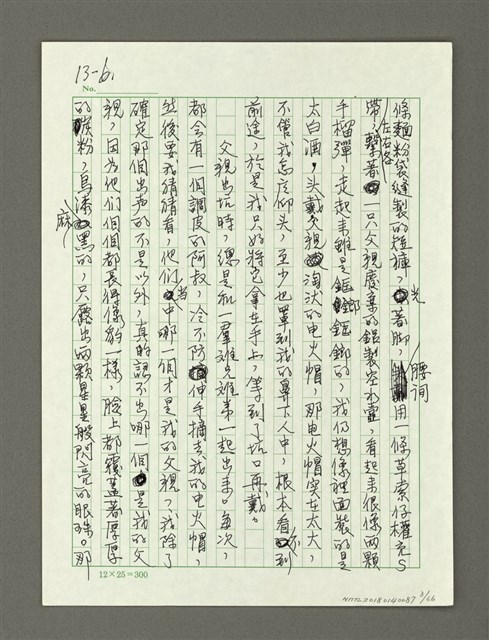 13-6.
No.
條麵粉袋縫製的短褲，光著腳，腰间用一條草索仔權充S
帶，左右各繫著一只父親廢棄的鋁製空水壺，看起来很像两顆
手榴彈，走起来雖是鋃鋃鎯鎯的，我仍想像裡面裝的是
太白酒，头戴父親淘汰的电火帽，那电火帽实在太大，
不管我怎应仰头，至少也罩到我的鼻下人中，根本看不到
前途，於是我只好將它拿在手上，等到了坑口再戴。
父親出坑時，總是和一羣难兄难弟一起出来，每次，
都会有一個調皮的阿叔，冷不防伸手摘去我的电火帽，
然後要我猜猜看，他们当中哪一個才是我的父親，我除了
確定那個出声的不是以外，真的認不出哪一個是我的父
親，因为他们個個都長得像豹一樣，臉上都覆蓋著厚厚
的碳粉，烏漆麻黑的，只露出两顆星星般閃亮的眼珠。那
12×25=300
NMTL20180140087 8/66